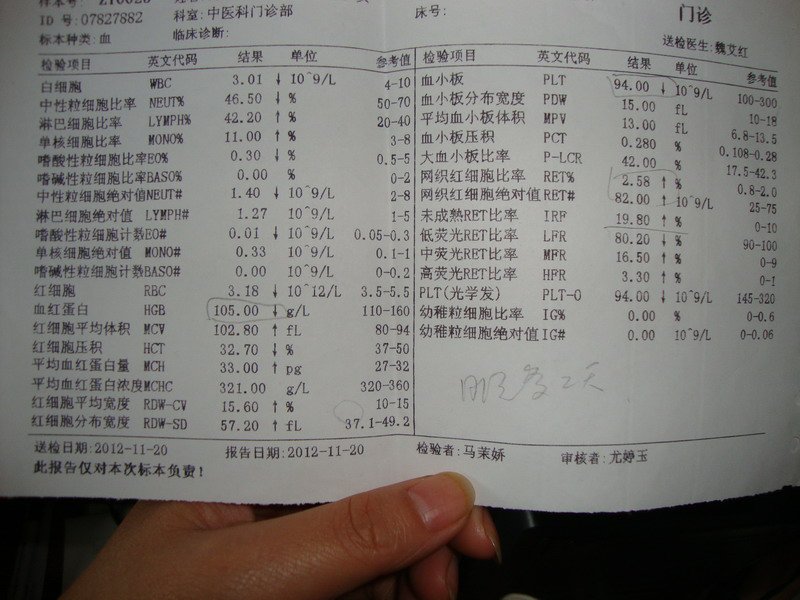 ID 号:07827882 科室:中医科门诊部 床号: 门诊
标本种类:血 临床诊断: 送检医生:魏艾红
检验项目 英文代码 结果 单位 参考值
白细胞 WBC 3.01 ↓ 10^9/L 4-10
中性粒细胞比率 NEUT% 46.50 ↓ % 50-70
淋巴细胞比率 LYMPH% 42.20 ↑ % 20-40
单核细胞比率 MONO% 11.00 ↑ % 3-8
嗜酸性粒细胞比率EO% 0.30 ↓ % 0.5-5
嗜碱性粒细胞比率BASO% 0.00 % 0-2
中性粒细胞绝对值NEUT# 1.40 ↓ 10^9/L 2-8
淋巴细胞绝对值 LYMPH# 1.27 10^9/L 1-5
嗜酸性粒细胞计数EO# 0.01 ↓ 10^9/L 0.05-0.3
单核细胞绝对值 MONO# 0.33 10^9/L 0.1-1
嗜碱性粒细胞计数BASO# 0.00 10^9/L 0-0.2
红细胞 RBC 3.18 ↓ 10^12/L 3.5-5.5
血红蛋白 HGB 105.00 ↓ g/L 110-160
红细胞平均体积 MCV 102.80 ↑ fL 80-94
红细胞压积 HCT 32.70 ↓ % 37-50
平均血红蛋白量 MCH 33.00 ↑ pg 27-32
平均血红蛋白浓度MCHC 321.00 g/L 320-360
红细胞平均宽度 RDW-CV 15.60 ↑ % 10-15
红细胞分布宽度 RDW-SD 57.20 ↑ fL 37.1-49.2
检验项目 英文代码 结果 单位 参考值
血小板 PLT 94.00 ↓ 10^9/L 100-300
血小板分布宽度 PDW 15.00 fL 10-18
平均血小板体积 MPV 13.00 fL 6.8-13.5
血小板压积 PCT 0.280 % 0.108-0.28
大血小板比率 P-LCR 42.00 % 17.5-42.3
网织红细胞比率 RET% 2.58 ↑ % 0.8-2.0
网织红细胞绝对值 RET# 82.00 ↑ 10^9/L 25-75
未成熟RET比率 IRF 19.80 ↑ % 0-10
低荧光RET比率 LFR 80.20 ↓ % 90-100
中荧光RET比率 MFR 16.50 ↑ % 0-9
高荧光RET比率 HFR 3.30 ↑ % 0-1
PLT(光学发) PLT-O 94.00 ↓ 10^9/L 145-320
幼稚粒细胞比率 IG% 0.00 % 0-0.6
幼稚粒细胞绝对值 IG# 0.00 10^9/L 0-0.06
送检日期:2012-11-20 报告日期:2012-11-20 检验者:马茉娇 审核者:尤婷玉
此报告仅对本次标本负责!